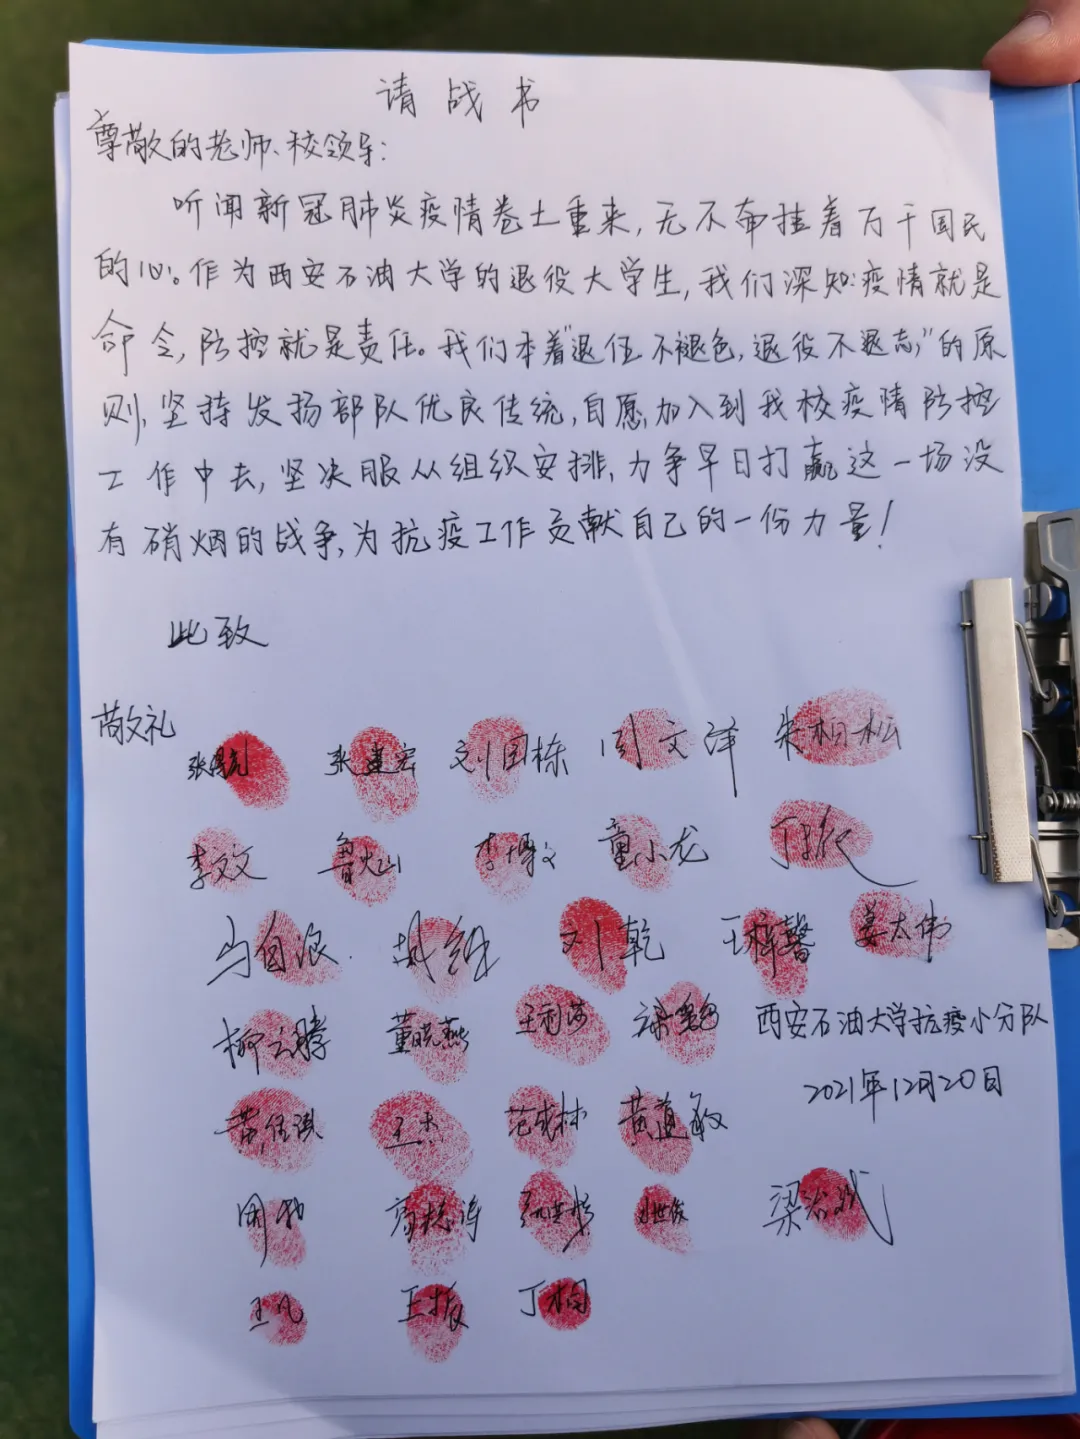 请战书
尊敬的老师、校领导:
听闻新冠肺炎疫情卷土重来,无不牵挂着万千国民
的心。作为西安石油大学的退役大学生,我们深知:疫情就是
命令,防控就是责任。我们本着"退伍不褪色,退役不退志,"的原
则,坚持发扬部队优良传统,自愿加入到我校疫情防控
工作中去,坚决服从组织安排,力争早日打赢这一场没
有硝烟的战争,为抗疫工作贡献自己的一份力量!
此致
敬礼
张建宏 刘国栋 周文泽 朱柏松
李文文 鲁火山 李博文 童小龙
马自浪 刘乾 王梓馨 姜太伟
柳云腾 董晓燕 王利莎 西安石油大学抗疫小分队
2021年12月20日
王杰 范成林 黄道敏
梁治斌
王凡 王振 丁桐